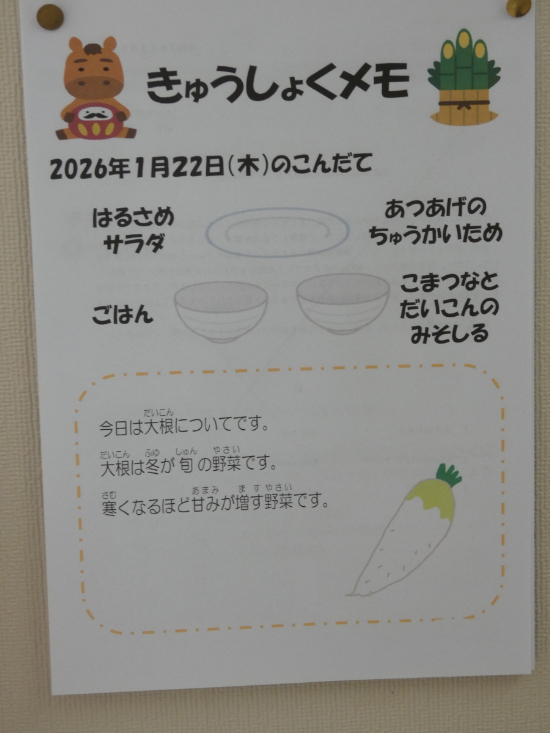 きゅうしょくメモ
2026年1月22日(木)のこんだて
はるさめ
サラダ
あつあげの
ちゅうかいため
ごはん
こまつなと
だいこんの
みそしる
今日は大根についてです。
大根は冬が旬の野菜です。
寒くなるほど甘みが増す野菜です。